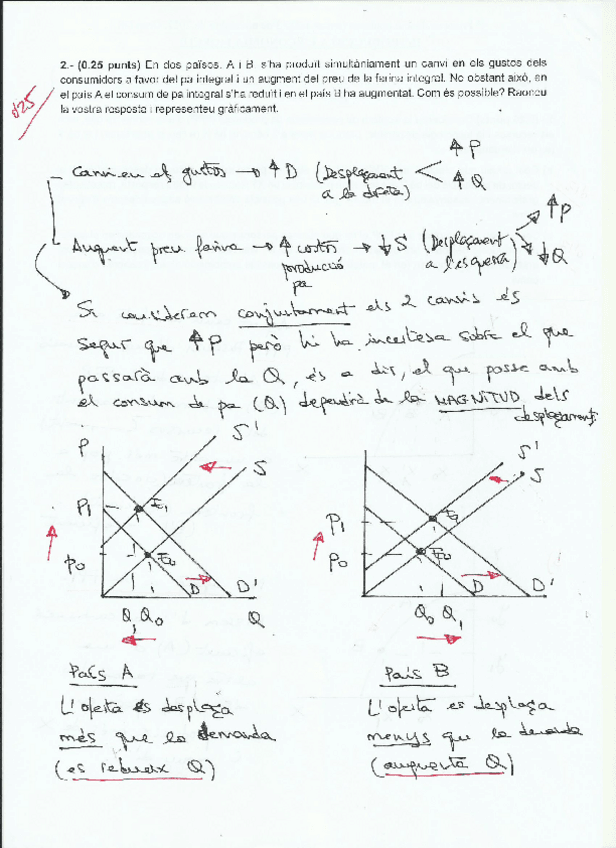 2.- (0.25 punts) En dos països, A i B, s'ha produït simultàniament un canvi en els gustos dels
consumidors a favor del pa integral i un augment del preu de la farina integral. No obstant això, en
el país A el consum de pa integral s'ha reduït i en el país B ha augmentat. Com és possible? Raoneu
la vostra resposta i representeu gràficament.
0'25
- Canvi en els gustos → ↑ D (Desplaçament a la dreta) ↑ P ↑ Q
- Augment preu farina → ↑ costos producció pa → ↓ S (Desplaçament a l'esquerra) ↑ P ↓ Q
Si considerem conjuntament els 2 canvis és
segur que ↑ P però hi ha incertesa sobre el que
passarà amb la Q, és a dir, el que passe amb
el consum de pa (Q) dependrà de la MAGNITUD dels
desplaçaments.
P S' S
P1 E1
P0 E0
D D'
Q1 Q0 Q
S' S
P1 E1
P0 E0
D D'
Q0 Q1
País A
L'oferta es desplaça
més que la demanda
(es redueix Q)
País B
L'oferta es desplaça
menys que la demanda
(augmenta Q)